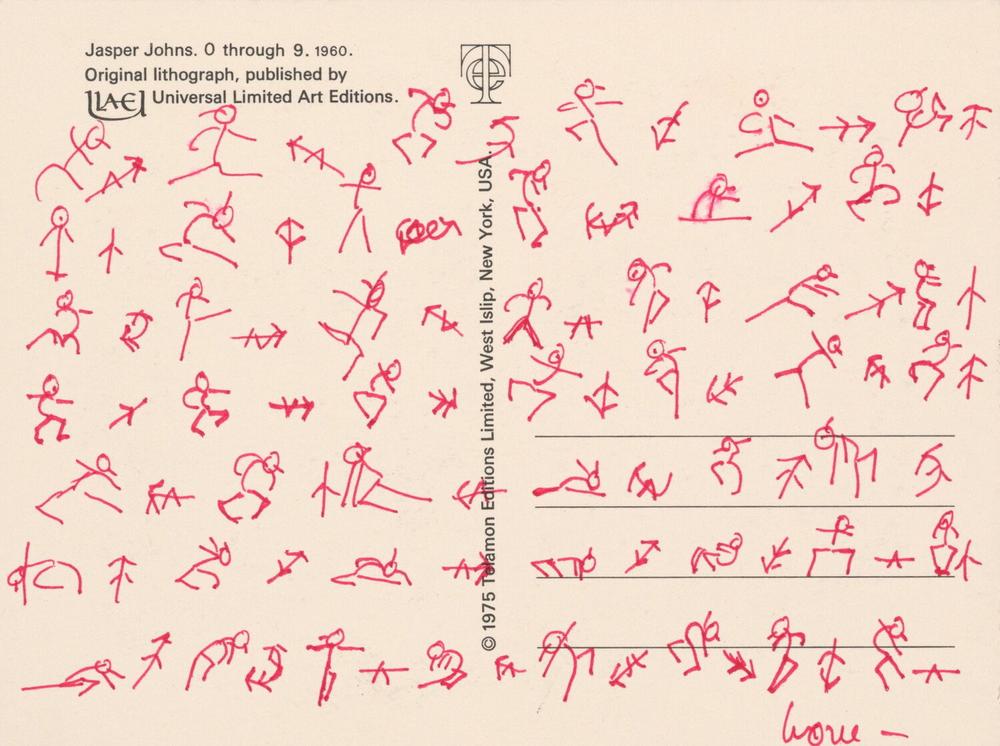 Jasper Johns. 0 through 9. 1960.
Original lithograph, published by
ULAE Universal Limited Art Editions.
© 1975 Telamon Editions Limited, West Islip, New York, USA.